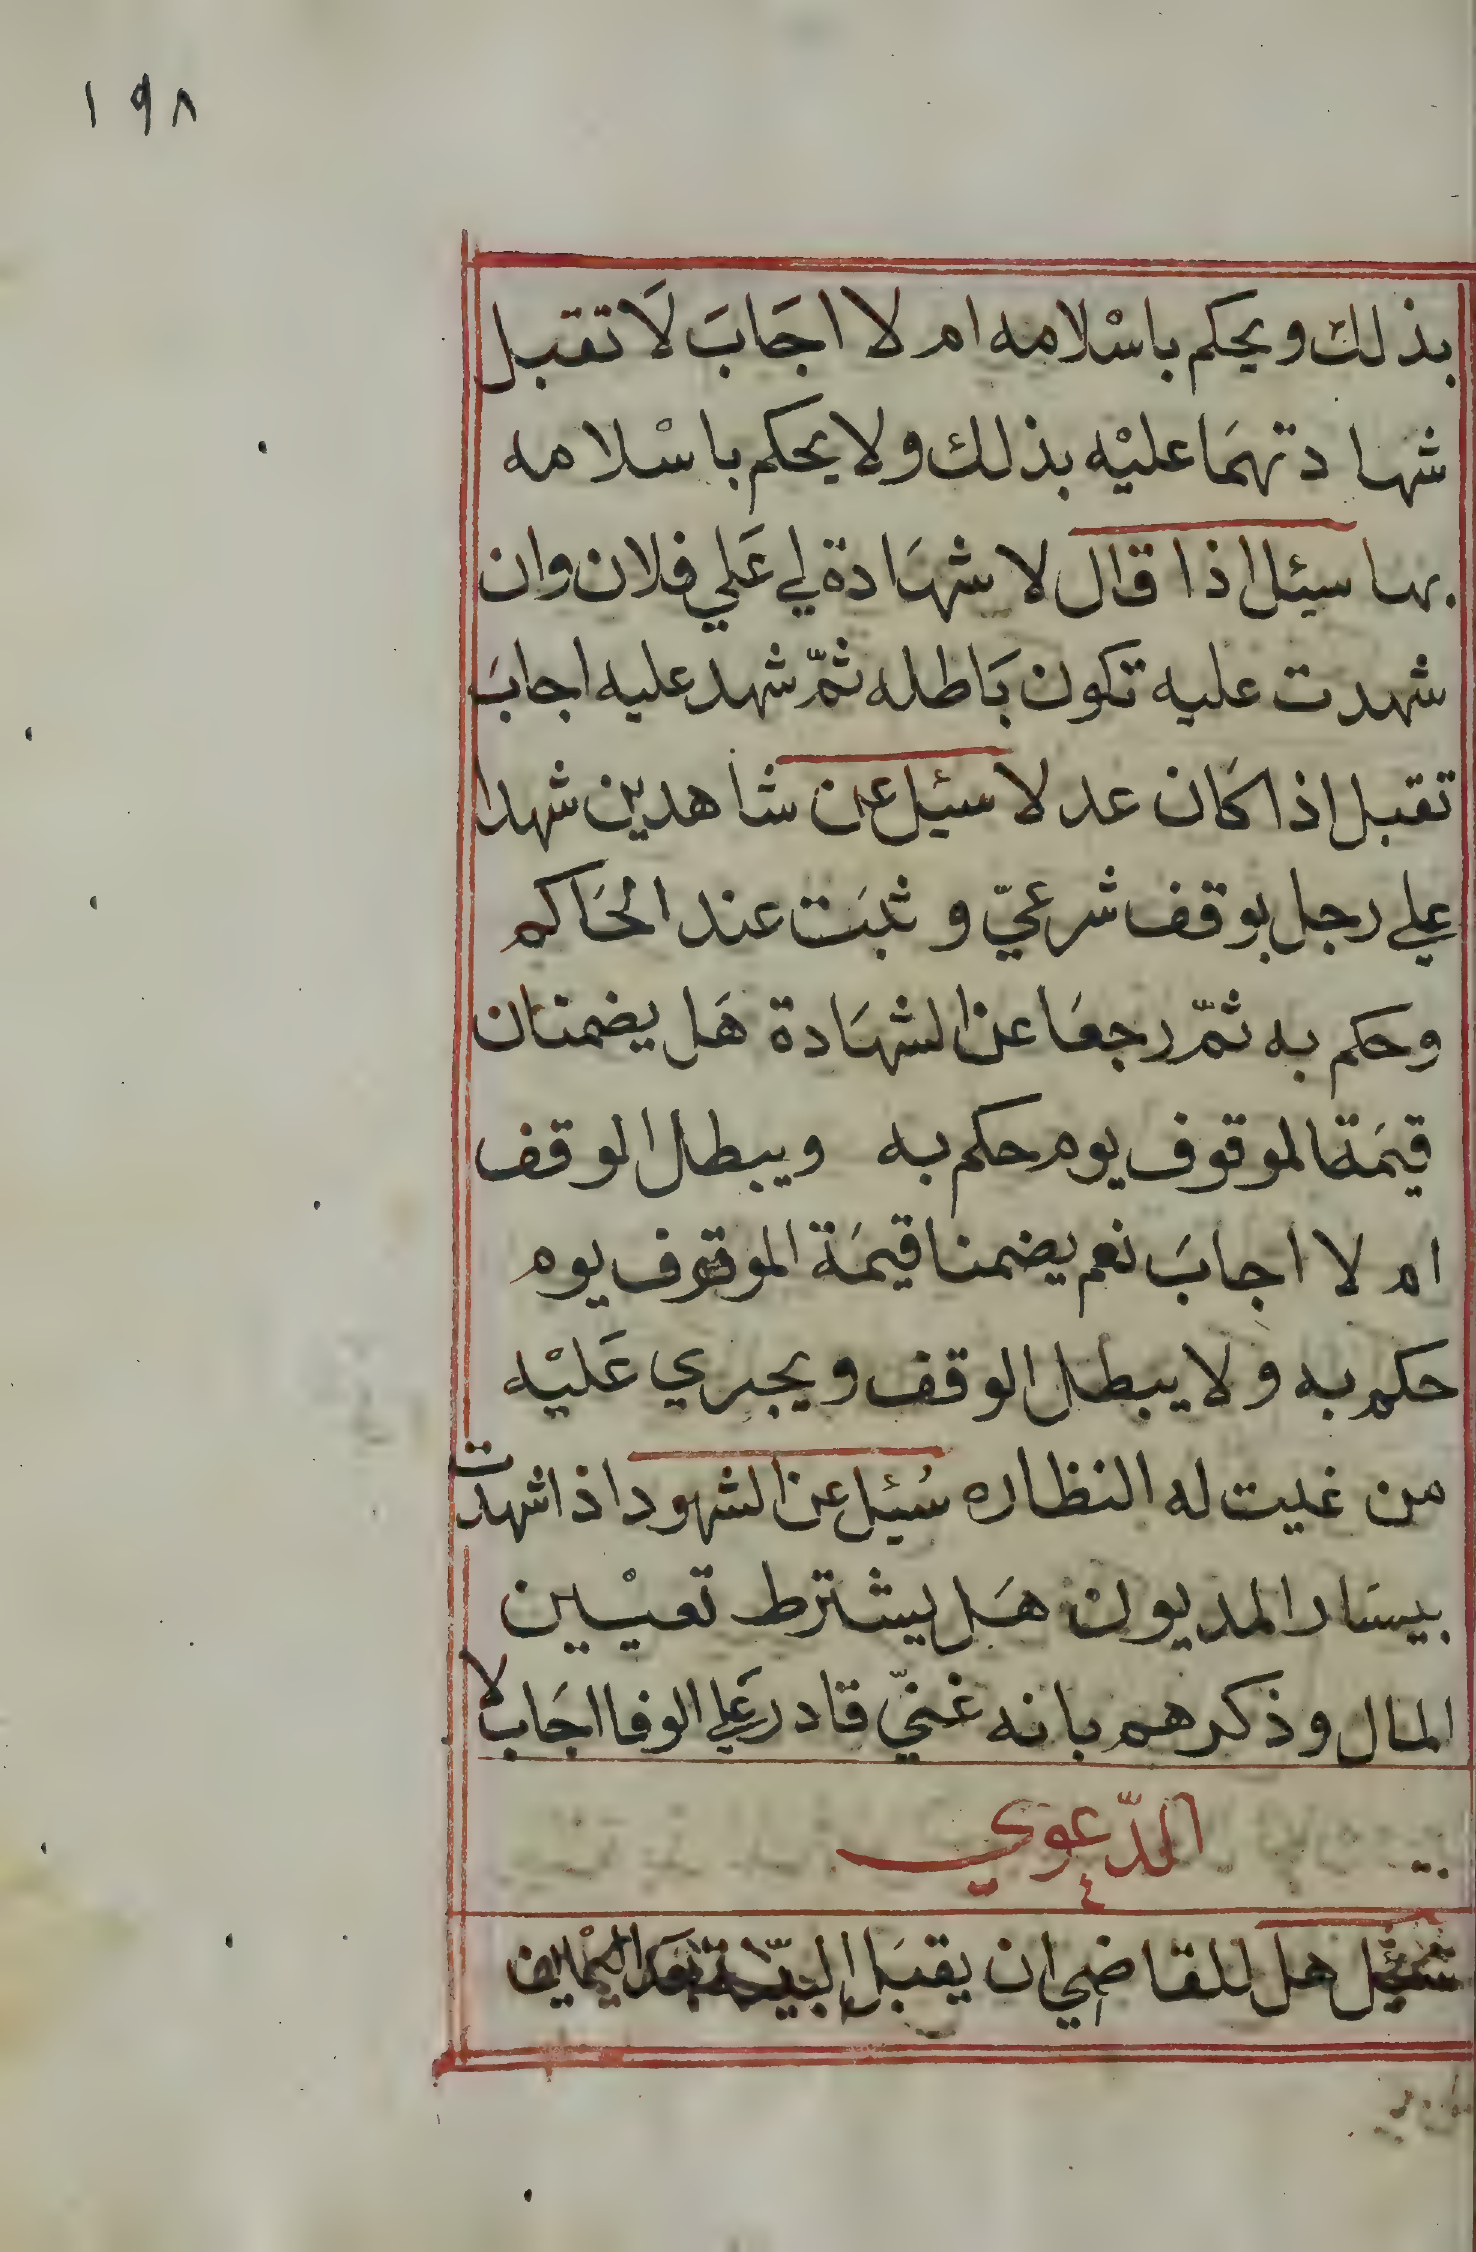 ١٩٨
بذلك ويحكم باسْلامه ام لا اجَابَ لَا تقبل
شهادتهمَا عليْه بذلك ولا يحكم باسْلامه
بها سيئل اذا قال لا شهَادة لي عَلي فلان وان
شهدت عليه تكون بَاطله ثمّ شهد عليه اجابَ
تقبل اذا كَان عدلا سيئل عن شاهدين شهدا
علي رجل بوقف شرعيّ وثبَت عند الحَاكم
وحكم به ثمّ رجعَا عن الشهَادة هَل يضمنان
قيمَة الموقوف يوم حكم به ويبطل الوقف
ام لا اجابَ نعم يضمنا قيمَة الموقوف يوم
حكم به ولا يبطل الوقف ويجري عَليْه
من غيت له النظاره سُيئل عن الشهود اذا شهدت
بيسَار المديون هَل يشترط تعيْسين
المال وذكرهم بانه غنيّ قادر عَلي الوفا اجَاب لا
الدّعوي
سئيل هل للقاضي ان يقبَل البيّنة بعَد اليمْين